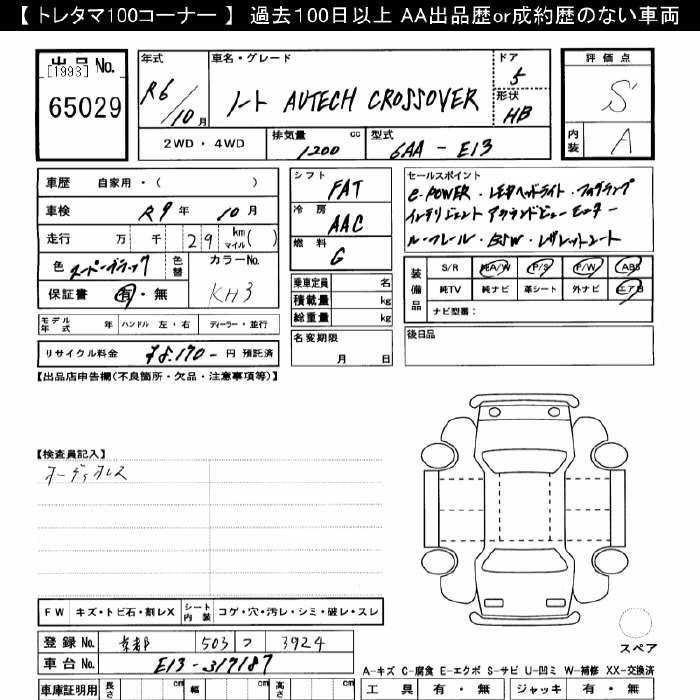 【 トレタマ100コーナー 】 過去100日以上 AA出品歴or成約歴のない車両
出品 No.
[1993]
65029
年式
R6/10月
車名・グレード
ノート AUTECH CROSSOVER
ドア
5
形状
HB
2WD ・ 4WD
排気量 cc
1200
型式
6AA - E13
評価点
S
内装
A
車歴 自家用・( )
車検 R9年 10月
走行 万 千 29 km マイル ( )
色 スーパーブラック 色替
カラーNo.
KH3
保証書 有・無
シフト
FAT
冷房
AAC
燃料
G
乗車定員 名
積載量 kg
総重量 kg
セールスポイント
e-POWER ・ LEDヘッドライト ・ フォグランプ
インテリジェント アラウンドビューモニター
ルーフレール ・ BSW ・ レザレットシート
装備品
S/R 純A/W P/S P/W ABS
純TV 純ナビ 革シート 外ナビ エアB
ナビ型番：
モデル年式 年 ハンドル 左・右 ディーラー・並行
リサイクル料金 ¥8,170- 円 預託済
名変期限
月 日
後日品
【出品店申告欄(不良箇所・欠品・注意事項等)】
【検査員記入】
オーディオレス
FW キズ・トビ石・割レX シート内装 コゲ・穴・汚レ・シミ・破レ・スレ
登録 No. 京都 503 つ 3924
車台 No. E13-317187
スペア
A-キズ C-腐食 E-エクボ S-サビ U-凹ミ W-補修 XX-交換済
車庫証明用 長さ cm 幅 cm 高さ cm
工具 有・無 ジャッキ 有・無